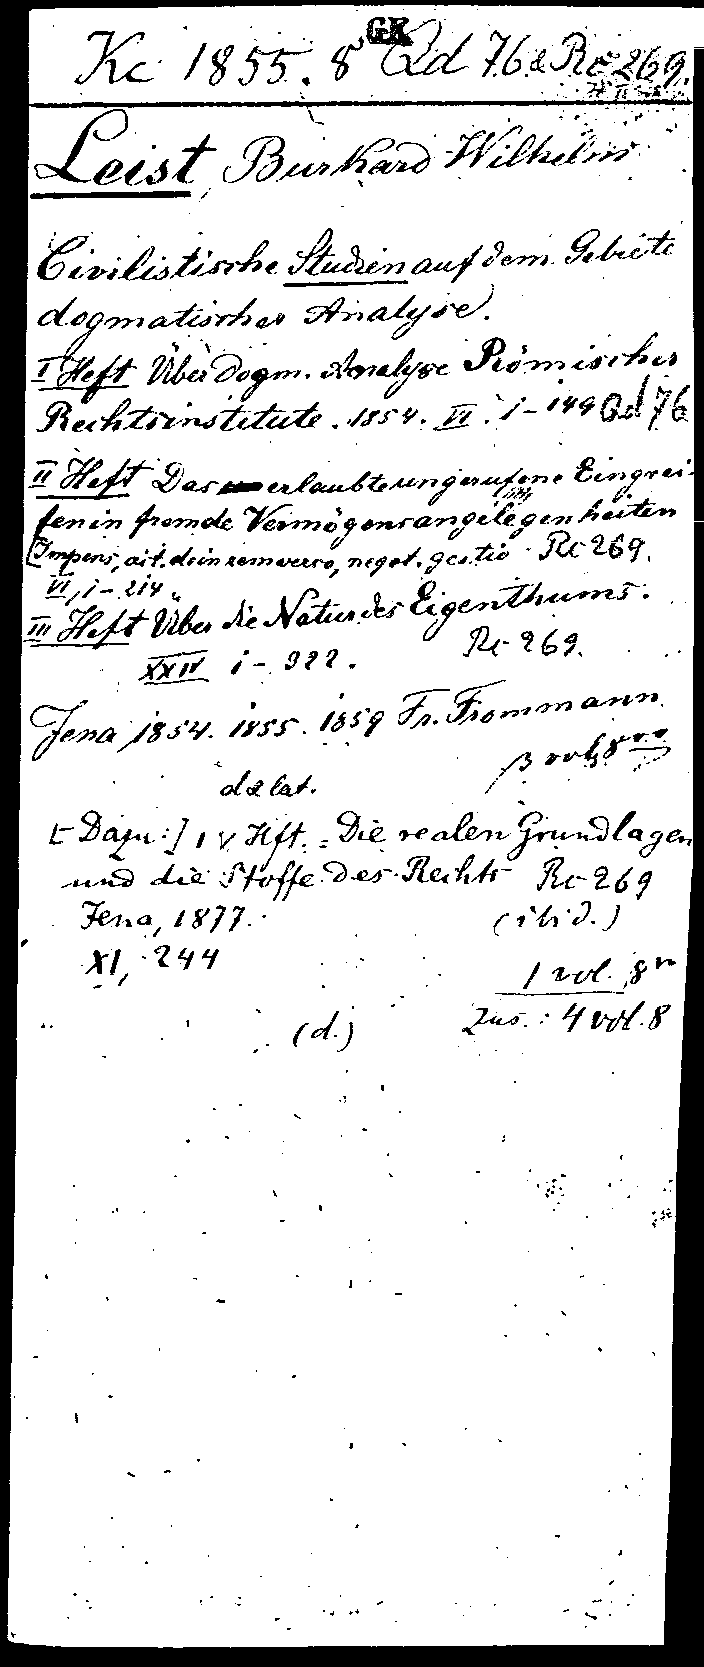 GK
Kc 1855. 8 Qd 76 & Rc 269.
Leist, Burkard Wilhelm
Civilistische Studien auf dem Gebiete
dogmatischer Analyse.
I Heft Über dogm. Analyse Römischer
Rechtsinstitute. 1854. VI. 1-149 Qd 76
II Heft Das erlaubte ungerufene Eingrei-
fen in fremde Vermögensangelegenheiten
(Impens, act. de in rem verso, negot. gestio Rc 269.
VI, 1-214
III Heft Über die Natur des Eigenthums.
XXIV 1-322. Rc 269.
Jena 1854. 1855. 1859 Fr. Frommann
3 vol 8vo
d & lat.
[Dazu:] IV Hft. = Die realen Grundlagen
und die Stoffe des Rechts Rc 269
Jena, 1877. (ibid.)
XI, 244
1 vol. 8vo
(d.) Zus.: 4 vol. 8